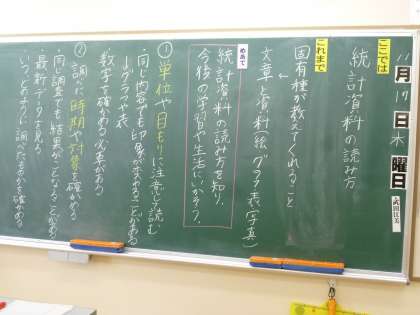 11月17日木曜日
ここでは
統計資料の読み方
これまで
固有種が教えてくれること
文章と資料(絵グラフ表写真)
めあて
統計資料の読み方を知り、
今後の学習や生活にいかそう。
① 単位や目もりに注意して読む
・同じ内容でも印象が変わることがある
↓グラフや表
数字を確かめる必要がある
② 調べた時期や対象を確かめる
・同じ調査でも結果がことなることがある
・最新データを見る
・いつ、どのように調べたものかを確かめる